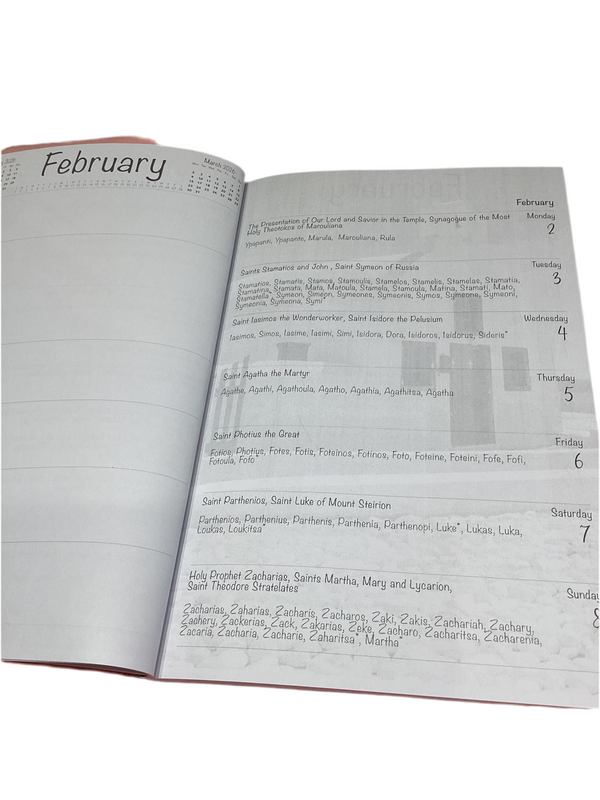 February
March 2026
February
Monday
2
The Presentation of Our Lord and Savior in the Temple, Synagogue of the Most
Holy Theotokos of Marouliana
Ypapanti, Ypapante, Marula, Marouliana, Rula
Tuesday
3
Saints Stamatios and John , Saint Symeon of Russia
Stamatios, Stamatis, Stamos, Stamoulis, Stamelos, Stamelis, Stamelas, Stamatia,
Stamatina, Stamata, Mata, Matoula, Stamela, Stamoula, Matina, Stamati, Mato,
Stamatella*, Symeon, Simeon, Symeones, Symeonis, Symos, Symeone, Symeoni,
Symeonia, Symeona, Symi*
Wednesday
4
Saint Iasimos the Wonderworker, Saint Isidore the Pelusium
Iasimos, Simos, Iasime, Iasimi, Simi, Isidora, Dora, Isidoros, Isidorus, Sideris*
Thursday
5
Saint Agatha the Martyr
Agathe, Agathi, Agathoula, Agatho, Agathia, Agathitsa, Agatha
Friday
6
Saint Photius the Great
Fotios, Photius, Fotes, Fotis, Foteinos, Fotinos, Foto, Foteine, Foteini, Fofe, Fofi,
Fotoula, Fofo*
Saturday
7
Saint Parthenios, Saint Luke of Mount Steirion
Parthenios, Parthenius, Parthenis, Parthenia, Parthenopi, Luke*, Lukas, Luka,
Loukas, Loukitsa*
Sunday
8
Holy Prophet Zacharias, Saints Martha, Mary and Lycarion,
Saint Theodore Stratelates
Zacharias, Zaharias, Zacharis, Zacharos, Zaki, Zakis, Zachariah, Zachary,
Zachery, Zackerias, Zack, Zakarias, Zeke, Zacharo, Zacharitsa, Zacharenia,
Zacaria, Zacharia, Zacharie, Zaharitsa*, Martha*